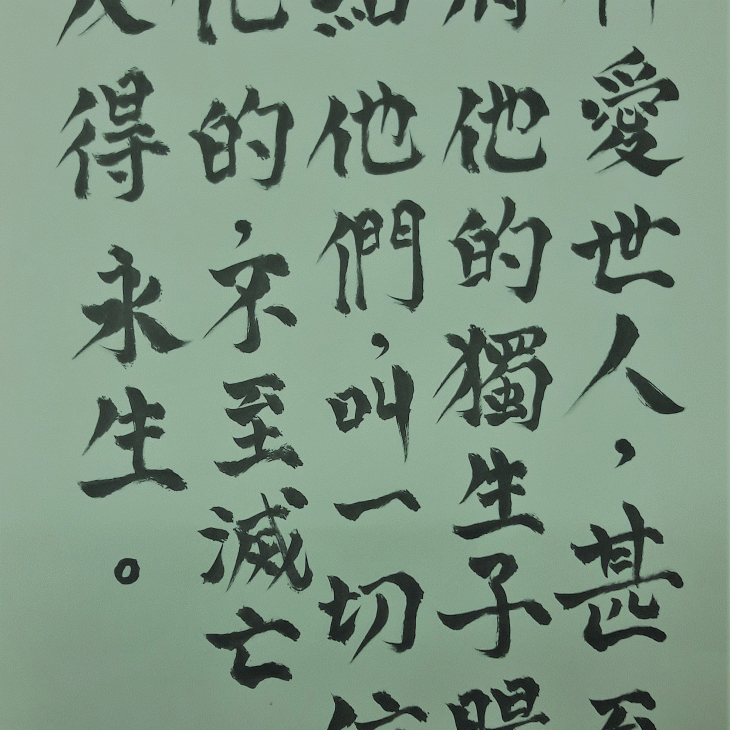 愛世人,甚至
他的獨生子賜
他們,叫一切信
的,不至滅亡
得永生。